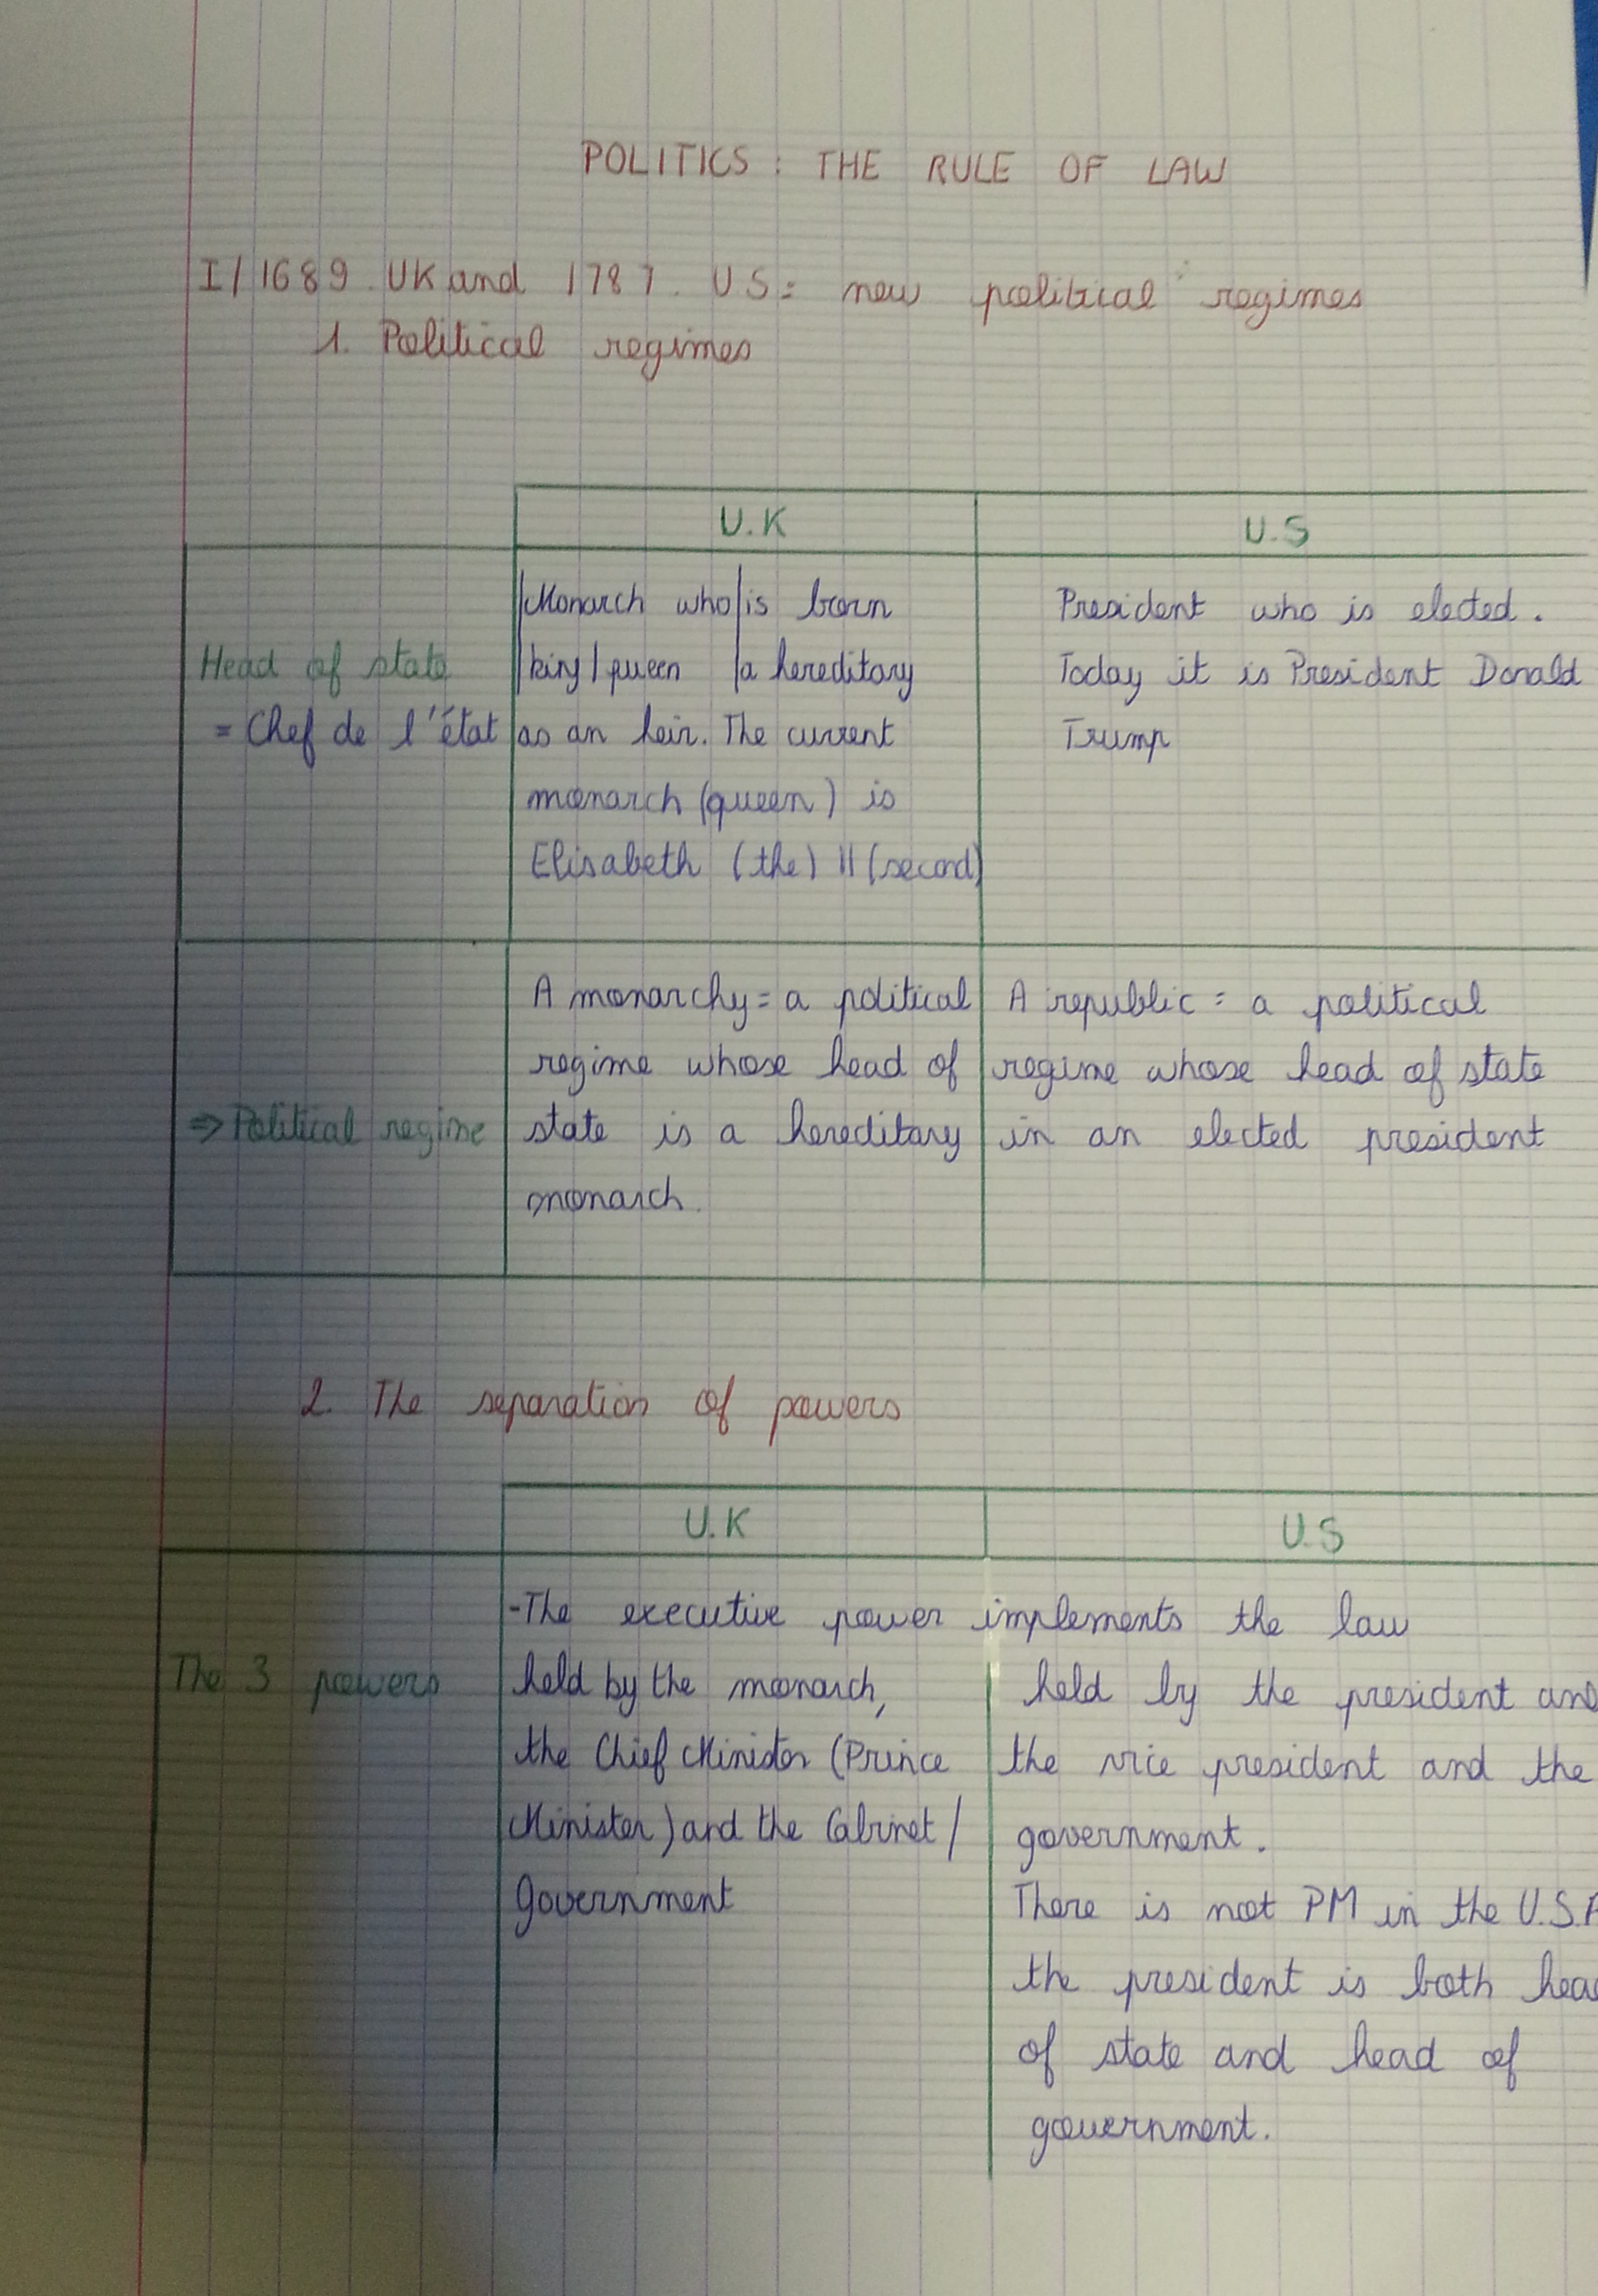 POLITICS : THE RULE OF LAW
I/ 1689. UK and 1787. US = new political regimes
1. Political regimes
U.K
U.S
Head of state
= Chef de l'état
Monarch who | is born
king / queen | a hereditary
as an heir. The current
monarch (queen) is
Elisabeth (the) II (second)
President who is elected.
Today it is President Donald
Trump
=> Political regime
A monarchy = a political
regime whose head of
state is a hereditary
monarch.
A republic = a political
regime whose head of state
in an elected president
2. The separation of powers
U.K
U.S
The 3 powers
- The executive power implements the law
held by the monarch,
the Chief Minister (Prince
Minister) and the Cabinet /
Government
held by the president and
the vice president and the
government.
There is not PM in the U.S.A
the president is both head
of state and head of
government.